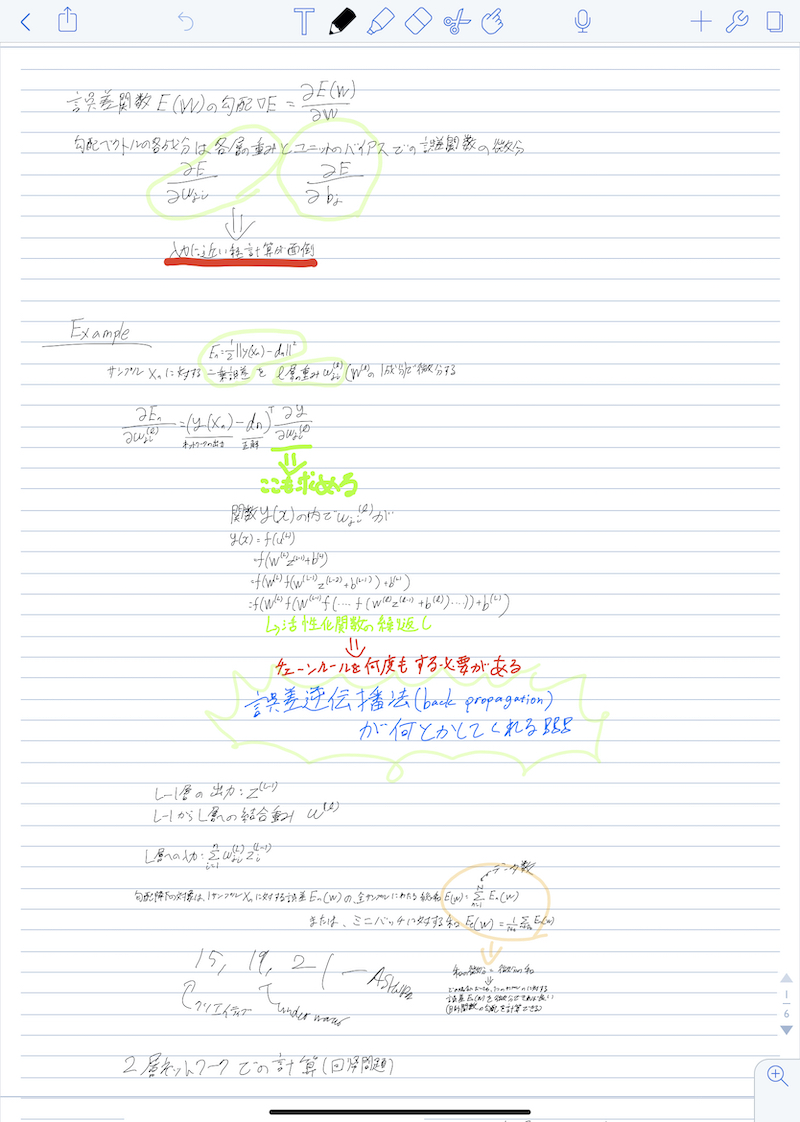 誤差関数 E(W)の勾配 ∇E = ∂E(W)/∂W
勾配ベクトルの各成分は各層の重みとユニットのバイアスでの誤差関数の微分
∂E/∂w_{ji} ∂E/∂b_j
⇓
入力に近い程計算が面倒
Example
E_n = 1/2 ||y(x_n) − d_n||^2
サンプル x_n に対する二乗誤差を l層の重み w_{ji}^{(l)} (W^{(l)}の1成分)で微分する
∂E_n/∂w_{ji}^{(l)} = (y(x_n) − d_n)^T ∂y/∂w_{ji}^{(l)}
ネットワークの出力 正解
⇓
ここを求める
関数 y(x)の内で w_{ji}^{(l)} が
y(x) = f(u^{(L)})
= f(W^{(L)} z^{(L-1)} + b^{(L)})
= f(W^{(L)} f(W^{(L-1)} z^{(L-2)} + b^{(L-1)}) + b^{(L)})
= f(W^{(L)} f(W^{(L-1)} f(… f(W^{(l)} z^{(l-1)} + b^{(l)})…)) + b^{(L)})
↳活性化関数の繰り返し
⇓
チェーンルールを何度もする必要がある
誤差逆伝播法(back propagation)
が何とかしてくれる
L−1層の出力: z^{(L-1)}
L−1からL層への結合重み w^{(L)}
L層への入力: Σ_{i=1}^{n} w_{ji}^{(L)} z_i^{(L-1)}
データ数
勾配降下の対象は、1サンプル x_n に対する誤差 E_n(W) の全サンプルにわたる総和 E(W) = Σ_{n=1}^{N} E_n(W)
または、ミニバッチに対する和 E_t(W) = 1/N_t Σ E_n(W)
15, 19, 21 —
クリエイティブ
under
和の微分 = 微分の和
⇓
誤差 E_n(W)を微分できれば良い
(目的関数の勾配を計算できる)
2層ネットワークでの計算(回帰問題)
1
6